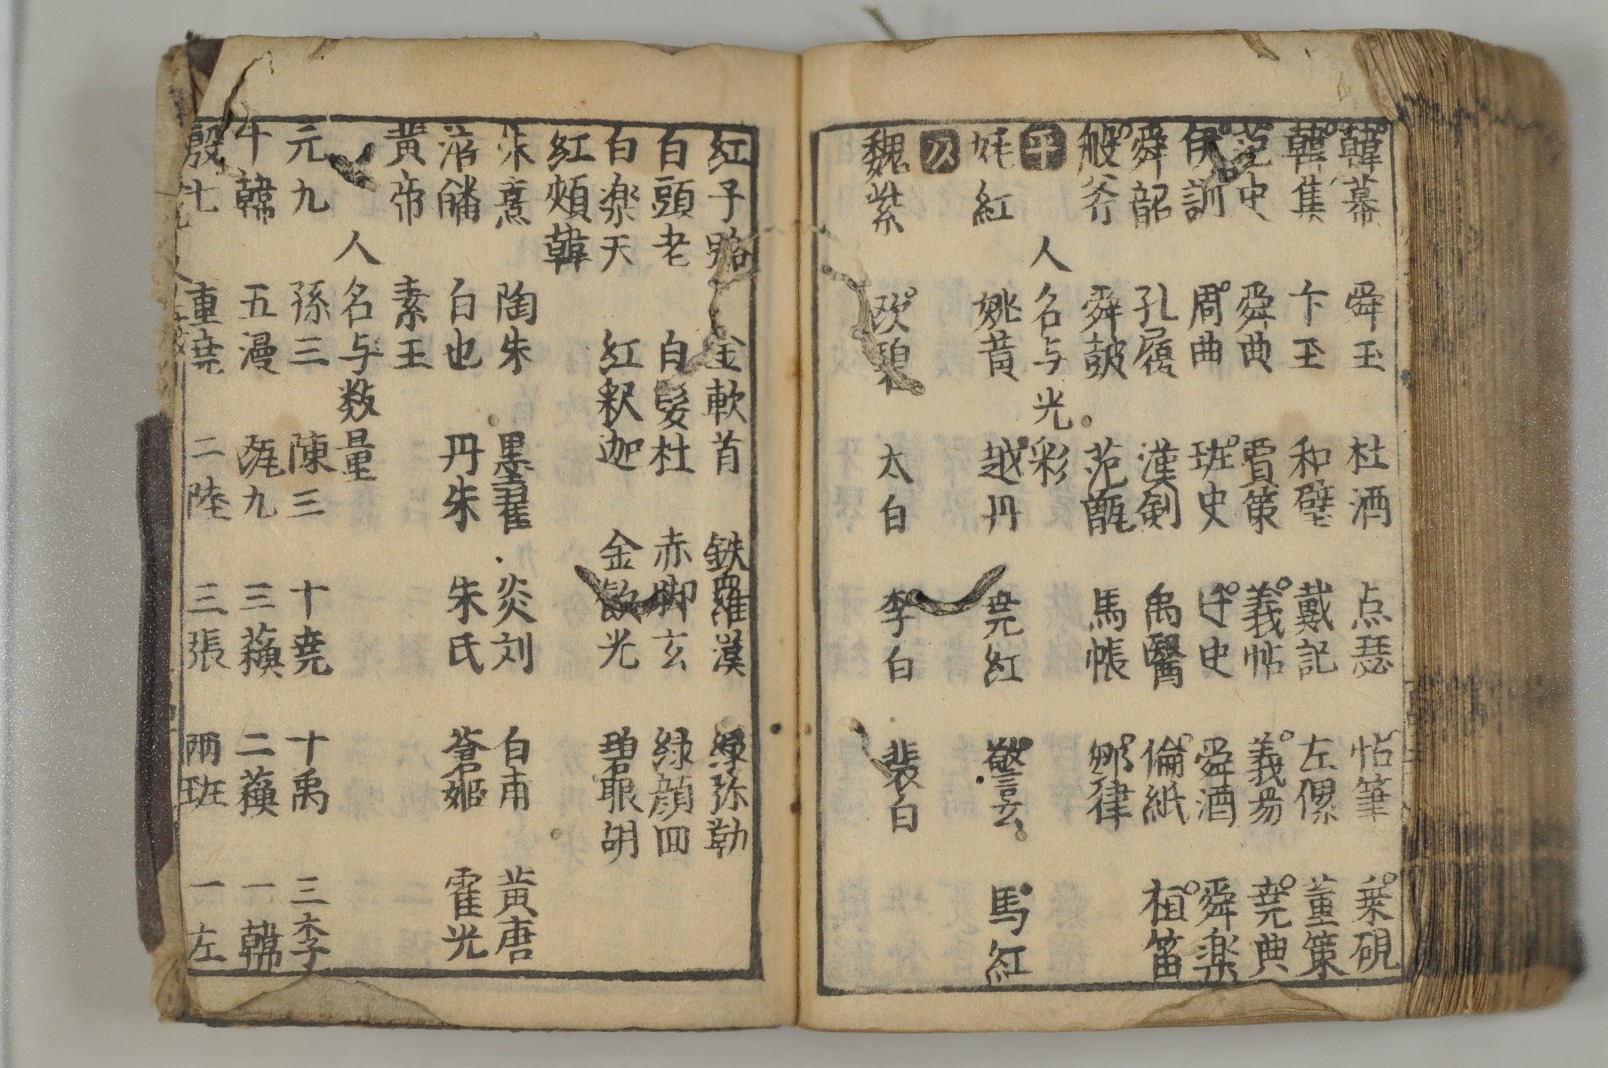 韓幕 舜玉 杜酒 点瑟 帖筆 桒硯
韓集 卞玉 和璧 戴記 左傳 董策
范史 舜典 賈策 義帖 義易 堯典
伊訓 周曲 班史 迁史 舜酒 舜楽
舜韶 孔履 漢剣 禹醫 倫紙 桓笛
般斧 舜皷 范甑 馬帳 鄒律
平 人名与光彩
姚紅 姚黄 越丹 堯紅 馬紅
仄
魏紫 欧碧 太白 李白 裴白
紅子路 金軟首 鉄羅漢 緑弥勒
白頭老 白髪杜 赤脚玄 緑顔回
白楽天 紅釈迦 金 光 碧眼胡
紅頰韓
朱熹 陶朱 墨翟 炎刘 白甫 黄唐
白也 丹朱 朱氏 蒼姬 霍光
黄帝 素王
人名与数量
元九 孫三 陳三 十堯 十禹 三李
千韓 五漫 九 三蘓 二蘓 一韓
殷七 重堯 二陸 三張 両班 一左